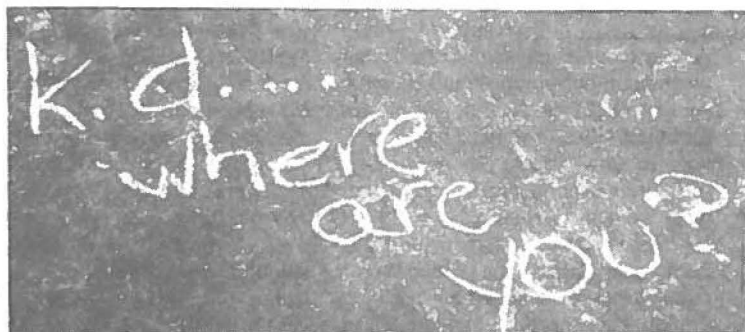 k.d....
where
are
you?